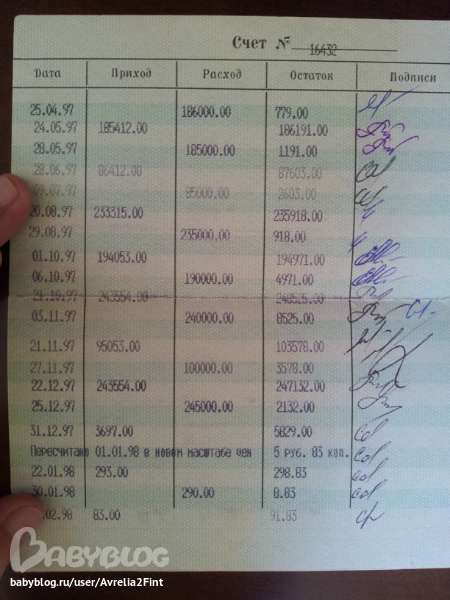 Счет № 16432
Дата Приход Расход Остаток Подписи
25.04.97 186000.00 779.00
24.05.97 185412.00 186191.00
28.05.97 185000.00 1191.00
28.06.97 86412.00 87603.00
09.07.97 85000.00 2603.00
20.08.97 233315.00 235918.00
29.08.97 235000.00 918.00
01.10.97 194053.00 194971.00
06.10.97 190000.00 4971.00
21.10.97 243554.00 248525.00
03.11.97 240000.00 8525.00
21.11.97 95053.00 103578.00
27.11.97 100000.00 3578.00
22.12.97 243554.00 247132.00
25.12.97 245000.00 2132.00
31.12.97 3697.00 5829.00
Пересчитано 01.01.98 в новом масштабе цен 5 руб. 83 коп.
22.01.98 293.00 298.83
30.01.98 290.00 8.83
.02.98 83.00 91.83
BABYBLOG
babyblog.ru/user/Avrelia2Fint